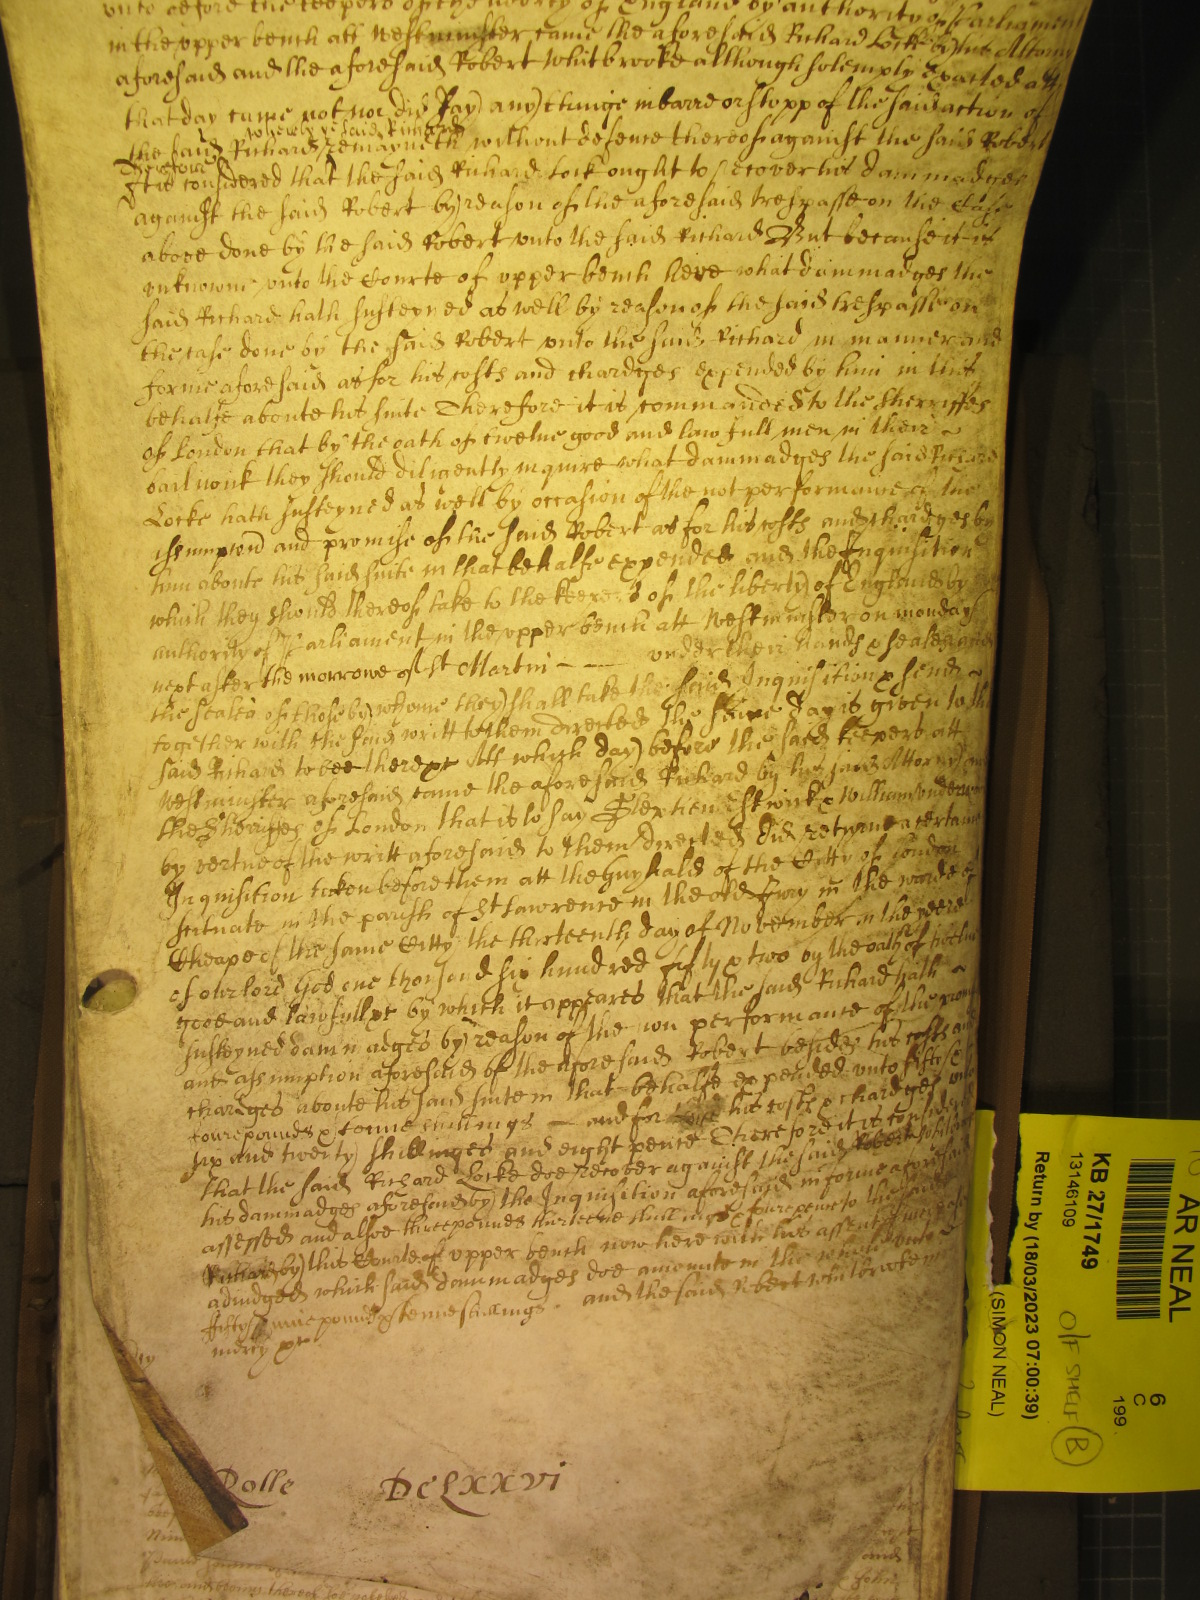 unto before the keepers of the liberty of England by authority of Parliament
in the upper bench att Westminster came the aforesaid Richard Locke by his Attorny
aforesaid and the aforesaid Robert Whitbrooke although solemply exacted att
that day came not nor did say any thinge in barre or stopp of the said action of
the said Richard whereby the said Richard remayneth without defence thereof against the said Robert
Therefore
It is considered that the said Richard Lock ought to recover his dammadges
against the said Robert by reason of the aforesaid trespasse on the Case
above done by the said Robert unto the said Richard But because it is
unknowne unto the Courte of upper bench here what dammadges the
said Richard hath susteyned as well by reason of the said trespasse on
the case done by the said Robert unto the said Richard in manner and
forme aforesaid as for his costs and chardges expended by him in this
behalfe aboute his suite Therefore it is commanded to the Sherriffes
of London that by the oath of twelve good and lawfull men in their
bailiwick they should diligently inquire what dammadges the said Richard
Locke hath susteyned as well by occasion of the not performance of the
assumption and promise of the said Robert as for his costs and chardges by
him aboute his said suite in that behalfe expended and the Inquisition
which they should thereof take to the keepers of the liberty of England by
authority of Parliament in the upper bench att Westminster on monday
next after the morrowe of St Martin under their hands & seales and
the seales of those by whome they shall take the said Inquisition & send
together with the said writt to them directed the same day is given to the
said Richard to bee there &c Att which day before the said keepers att
Westminster aforesaid came the aforesaid Richard by his said Attorny and
the Sherriffes of London that is to say Stephen Estwick & William Underwood
by vertue of the writt aforesaid to them directed did returne a certaine
Inquisition taken before them att the Guyhald of the Citty of London
scituate in the parish of St Lawrence in the old Jury in the warde of
Cheape of the same Citty the thirteenth day of November in the yeere
of our lord God one thousand six hundred fifty & two by the oath of twelve
good and lawfull &c by which it appeares that the said Richard hath
susteyned dammadges by reason of the non performance of the promise
and assumption aforesaid of the aforesaid Robert besides his costs and
chardges aboute his said suite in that behalfe expended unto fiftie
foure pounds & tenne shillings and for his costs & chardges unto
six and twenty shillinges and eight pence Therefore it is considered
that the said Richard Locke doe recover against the said Robert Whitbrooke
his dammadges aforesaid by the Inquisition aforesaid in forme aforesaid
assessed and alsoe three pounds thirteene shillings & foure pence to the said
Richard by this Courte of upper bench now here with his assent of increase
adiudged which said dammadges doe amounte in the whole unto
fifty nine pounds & tenne shillings and the said Robert Whitbrooke in
mercy &c
Rolle DCLXXVI
AR NEAL
6
C
199
KB 27/1749
13146109
O/F SHELF B
Return by (18/03/2023 07:00:39)
(SIMON NEAL)